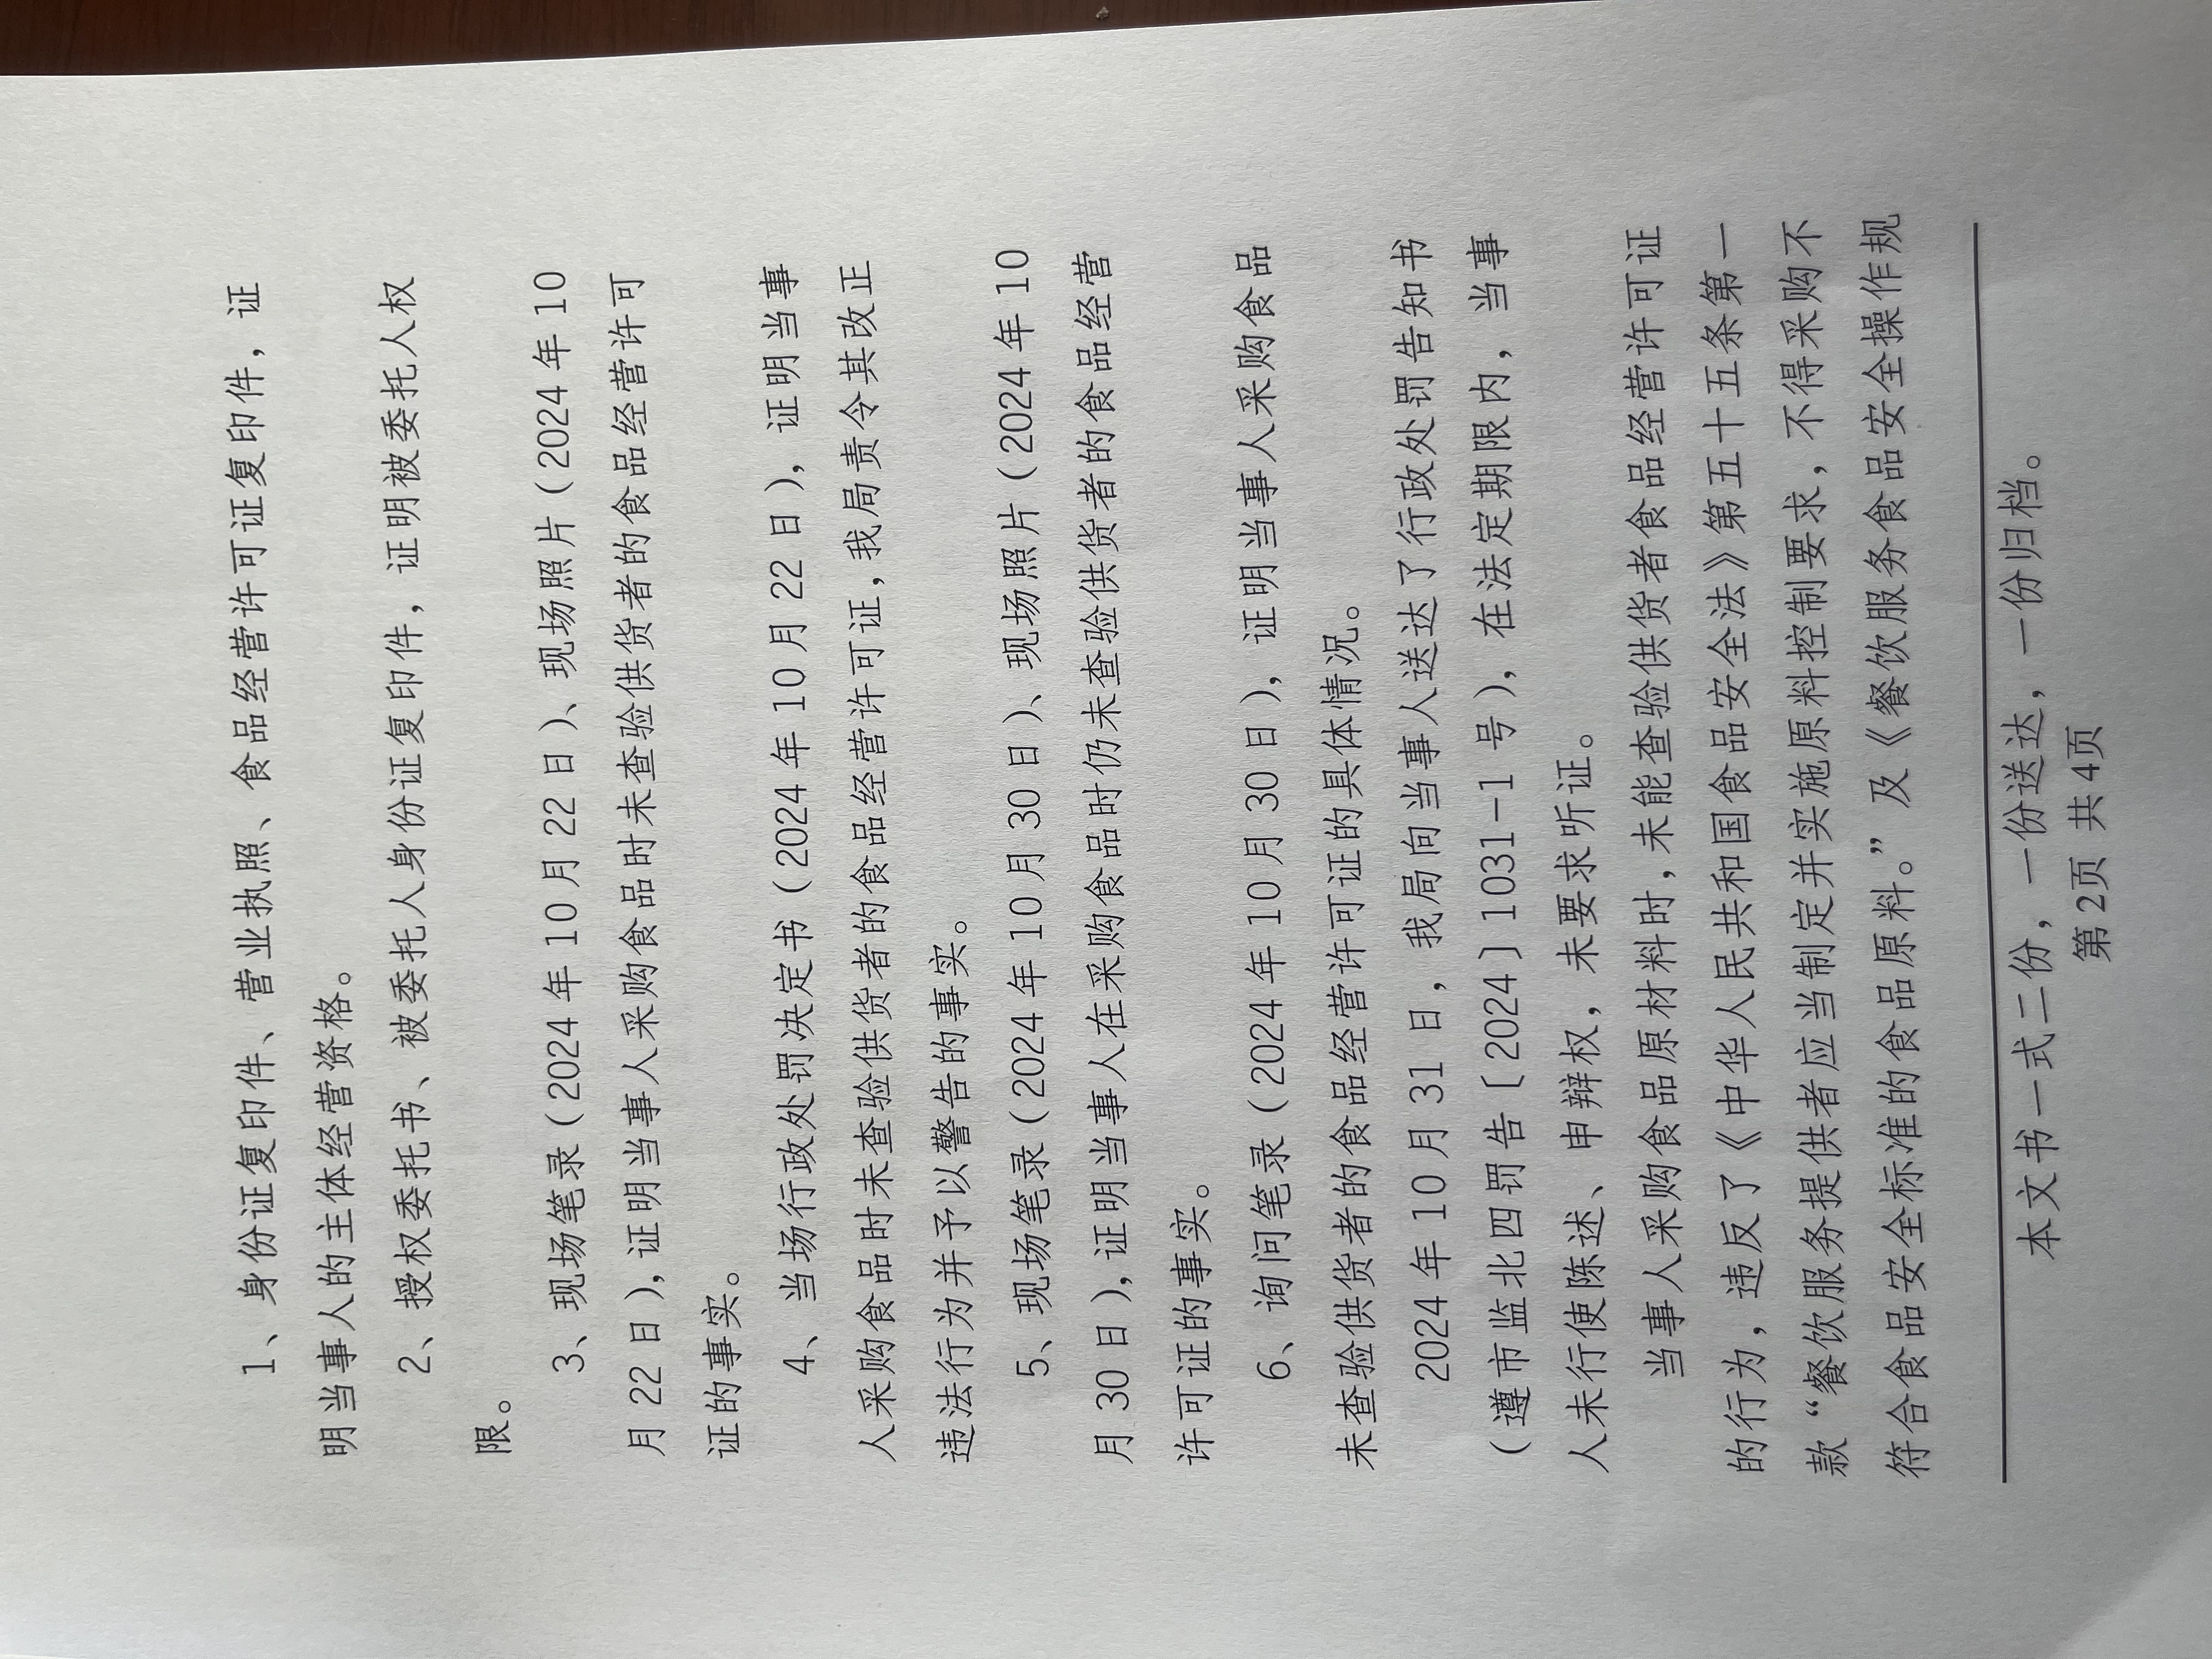 1、身份证复印件、营业执照、食品经营许可证复印件，证
明当事人的主体经营资格。
2、授权委托书、被委托人身份证复印件，证明被委托人权
限。
3、现场笔录（2024 年 10 月 22 日）、现场照片（2024 年 10
月 22 日），证明当事人采购食品时未查验供货者的食品经营许可
证的事实。
4、当场行政处罚决定书（2024 年 10 月 22 日），证明当事
人采购食品时未查验供货者的食品经营许可证，我局责令其改正
违法行为并予以警告的事实。
5、现场笔录（2024 年 10 月 30 日）、现场照片（2024 年 10
月 30 日），证明当事人在采购食品时仍未查验供货者的食品经营
许可证的事实。
6、询问笔录（2024 年 10 月 30 日），证明当事人采购食品
未查验供货者的食品经营许可证的具体情况。
2024 年 10 月 31 日，我局向当事人送达了行政处罚告知书
（遵市监北四罚告〔2024〕1031-1 号），在法定期限内，当事
人未行使陈述、申辩权，未要求听证。
当事人采购食品原材料时，未能查验供货者食品经营许可证
的行为，违反了《中华人民共和国食品安全法》第五十五条第一
款“餐饮服务提供者应当制定并实施原料控制要求，不得采购不
符合食品安全标准的食品原料。”及《餐饮服务食品安全操作规
本文书一式二份，一份送达，一份归档。
第2页 共4页